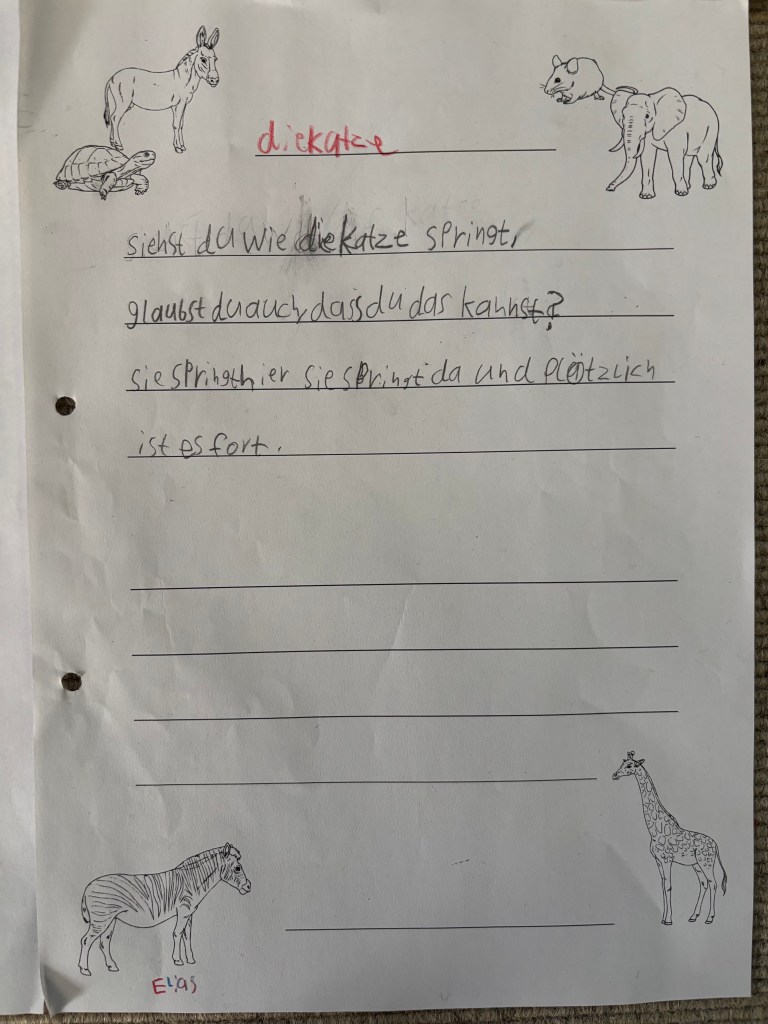 diekatze
siehst du wie die katze springt,
glaubst du auch, dass du das kannst?
sie springt hier sie springt da und plötzlich
ist es fort.
Elias